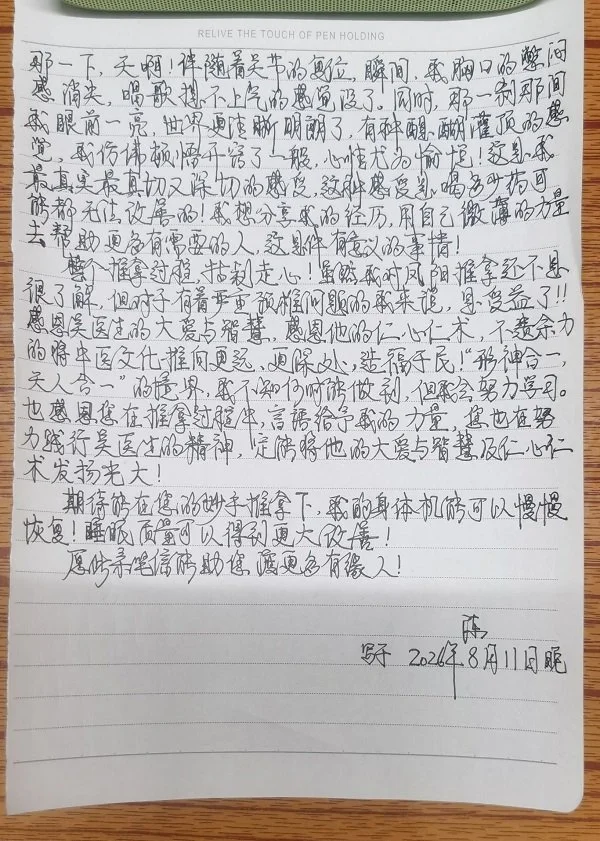 RELIVE THE TOUCH OF PEN HOLDING
那一下，天啊！伴随着关节的复位，瞬间，我胸口的憋闷
感消失，喝歌提不上气的感觉没了。同时，那一刹那间
我眼前一亮，世界更清晰明朗了，有种醍醐灌顶的感
觉，我仿佛顿悟开窍了一般，心情尤为愉悦！这是我
最真实最真切又深切的感受，这种感受是喝多少药可
能都无法改善的！我想分享我的经历，用自己微薄的力量
去帮助更多有需要的人，这是件有意义的事情！
整个推拿过程，拈刹走心！虽然我对凤阳推拿还不是
很了解，但对于有着严重颈椎问题的我来说，是受益了！！
感恩吴医生的大爱与智慧，感恩他的仁心仁术，不遗余力
的将中医文化推向更远、更深处，造福于民！“形神合一，
天人合一”的境界，我不知何时能做到，但我会努力学习。
也感恩您在推拿过程中，言语给予我的力量，您也在努
力践行吴医生的精神，定能将他的大爱与智慧及仁心仁
术发扬光大！
期待能在您的妙手推拿下，我的身体机能可以慢慢
恢复！睡眠质量可以得到更大改善！
愿此亲笔信能助您渡更多有缘人！
陈
写于 2026年8月11日晚